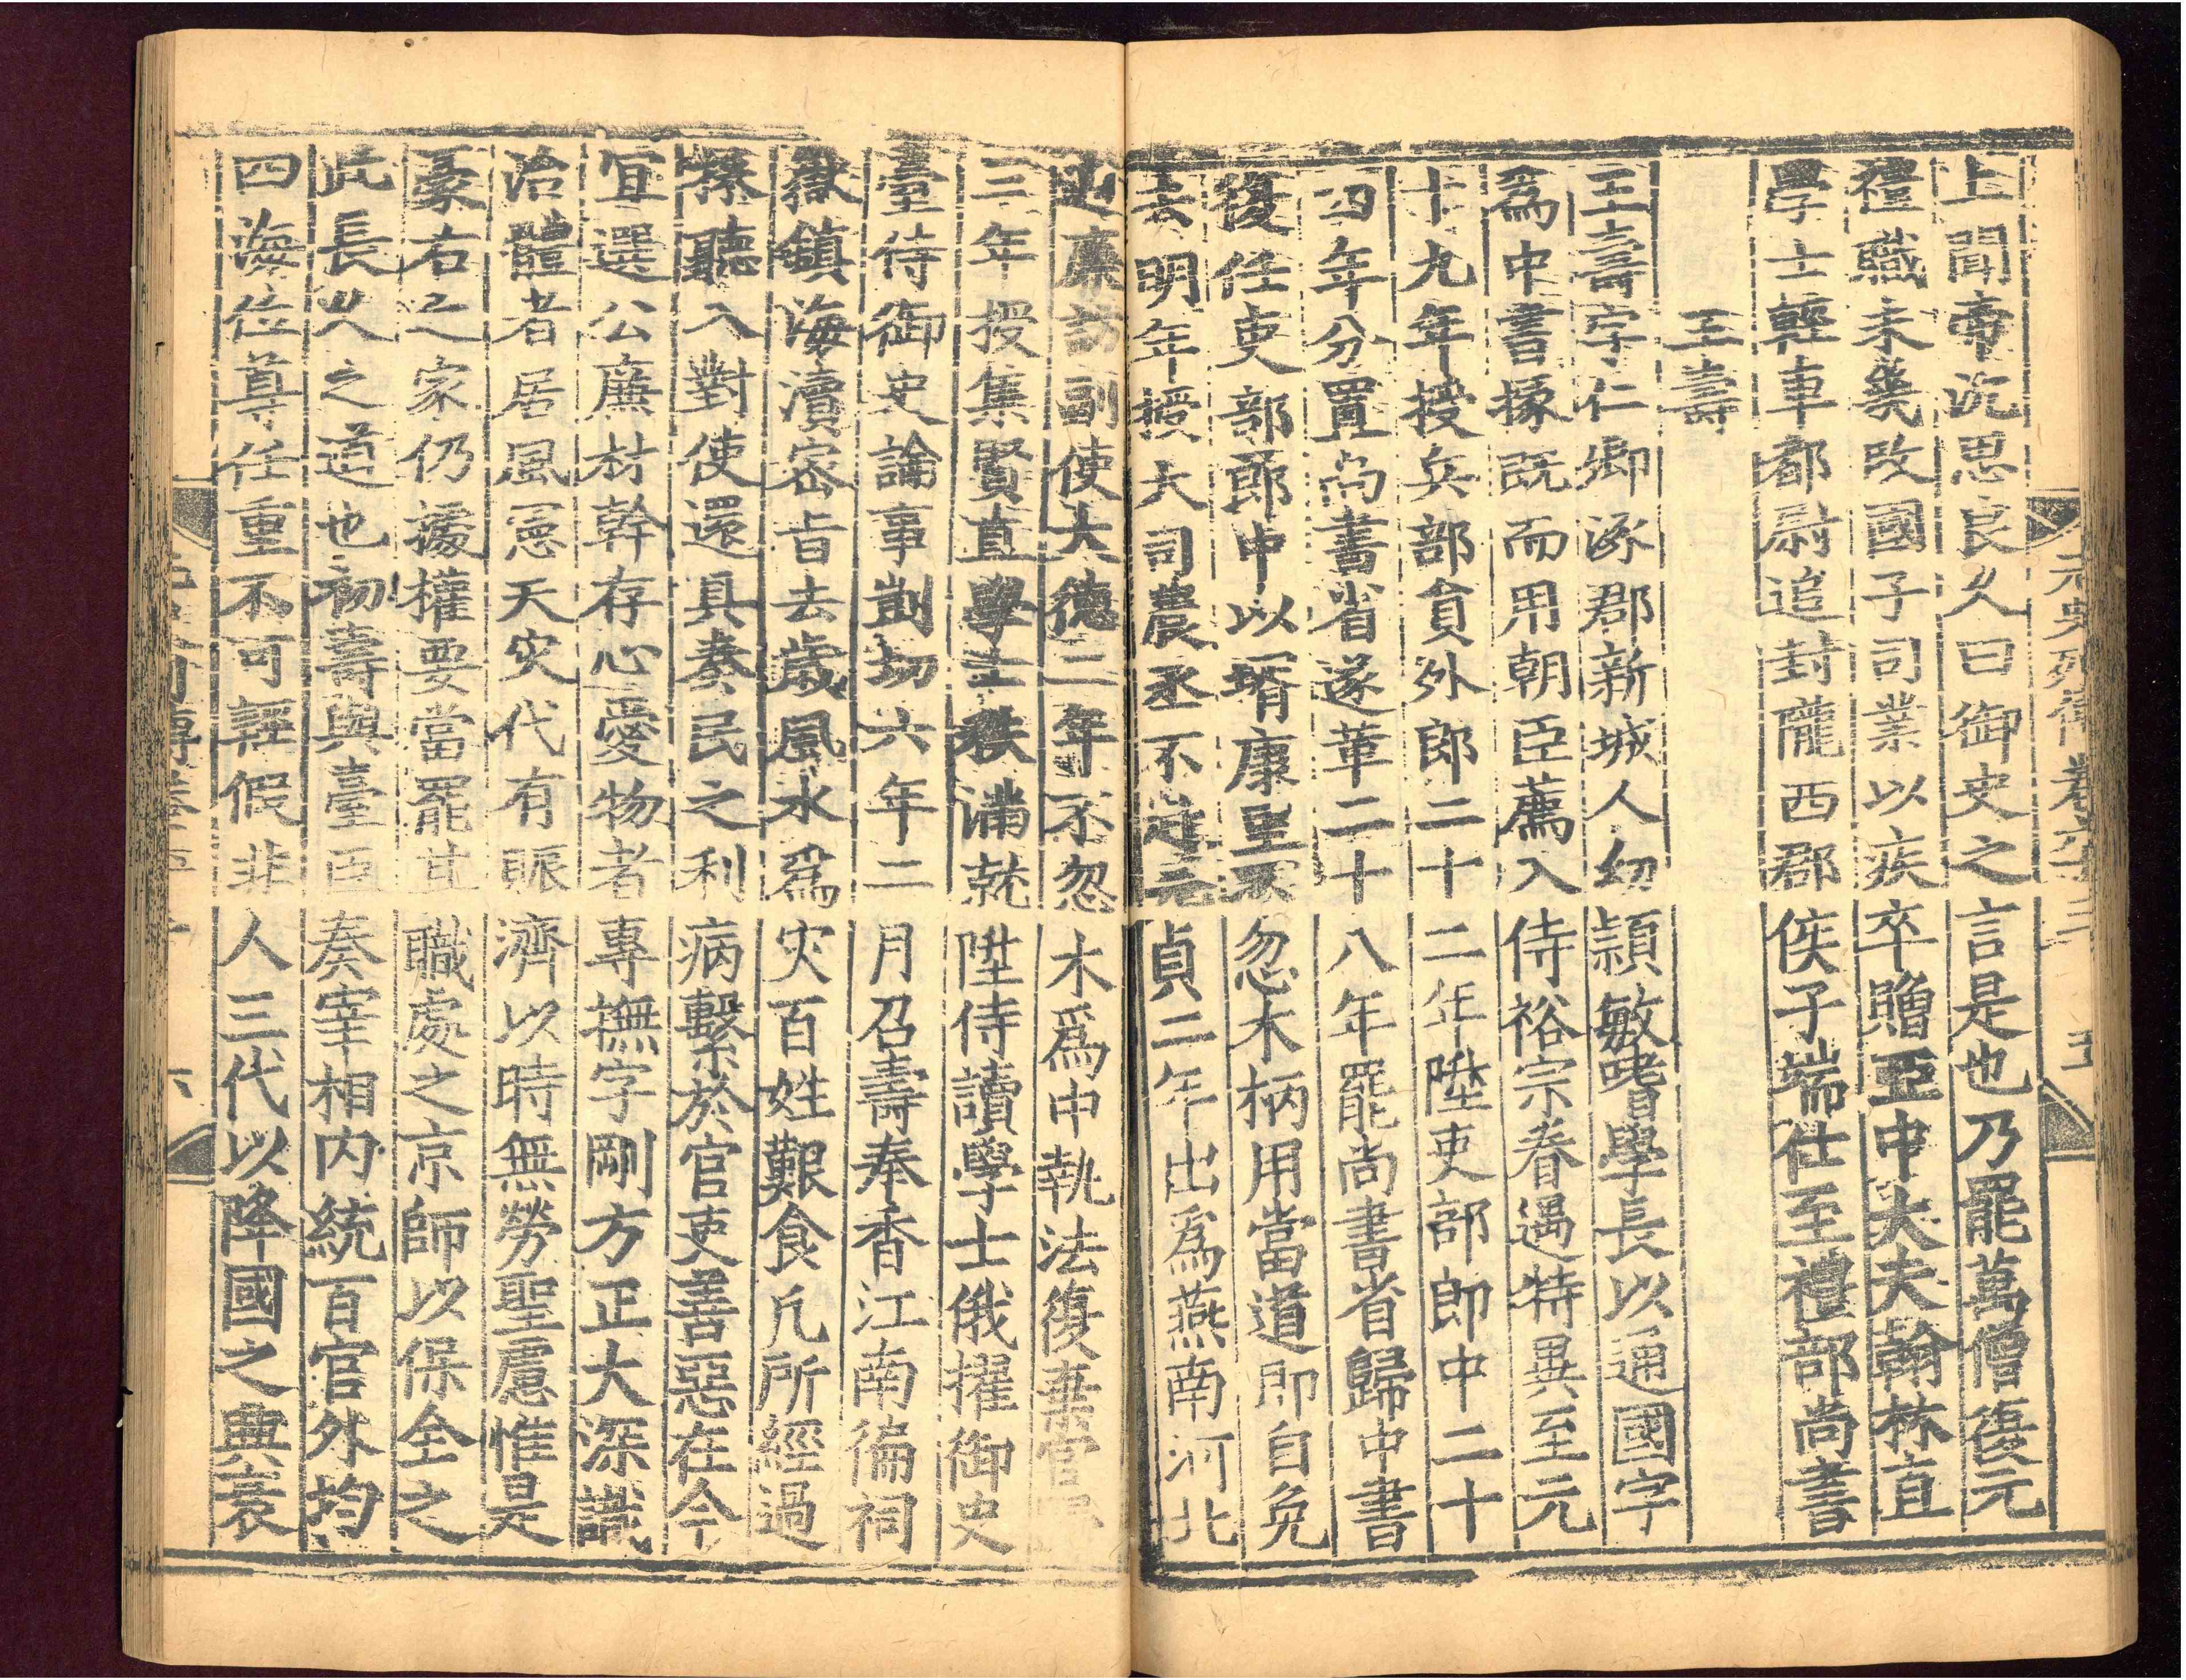 上聞帝沉思良久曰御史之言是也乃罷萬僧復元
禮職未幾改國子司業以疾卒贈亞中大夫翰林直
學士輕車都尉追封隴西郡侯子端仕至禮部尚書
王壽
王壽字仁卿涿郡新城人幼穎敏嗜學長以通國字
爲中書掾既而用朝臣薦入侍裕宗眷遇特異至元
十九年授兵部貟外郎二十二年陞吏部郎中二十
四年分置尚書省遂革二十八年罷尚書省歸中書
復任吏部郎中以壻康里不忽木柄用當道即自免
去明年授大司農丞不赴元貞二年出爲燕南河北
廉訪副使大德二年不忽木爲中執法復棄官
三年授集賢直學士秩滿就陞侍讀學士俄擢御史
臺侍御史論事剴切六年二月召壽奉香江南徧祠
嶽鎮海瀆密旨去歲風水爲灾百姓艱食凡所經過
採聽入對使還具奏民之利病繫於官吏善惡在今
宜選公廉材幹存心愛物者專撫字剛方正大深識
治體者居風憲天灾代有賑濟以時無勞聖慮惟是
豪右之家仍據權要當罷其職處之京師以保全之
此長久之道也初壽與臺臣奏宰相內統百官外均
四海位尊任重不可輕假非人三代以降國之興衰
元史列傳卷六十三 五
六